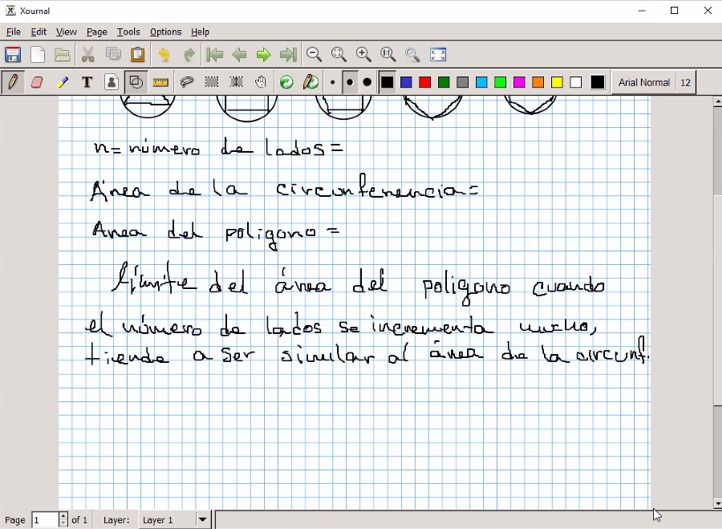 Xournal
File Edit View Page Tools Options Help
T Arial Normal 12
n= número de lados=
Área de la circunferencia=
Area del poligono =
límite del área del poligono cuando
el número de lados se incrementa mucho,
tiende a ser similar al área de la circunf.
Page 1 of 1 Layer: Layer 1